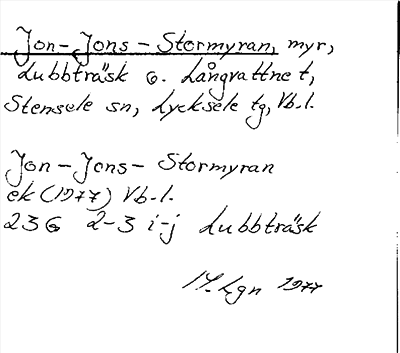 Jon-Jons-Stormyran, myr,
Lubbträsk o. Långvattnet,
Stensele sn, Lycksele tg, Vb.l.
Jon-Jons-Stormyran
ek (1977) Vb.l.
23G 2-3 i-j Lubbträsk
Lgn 1977